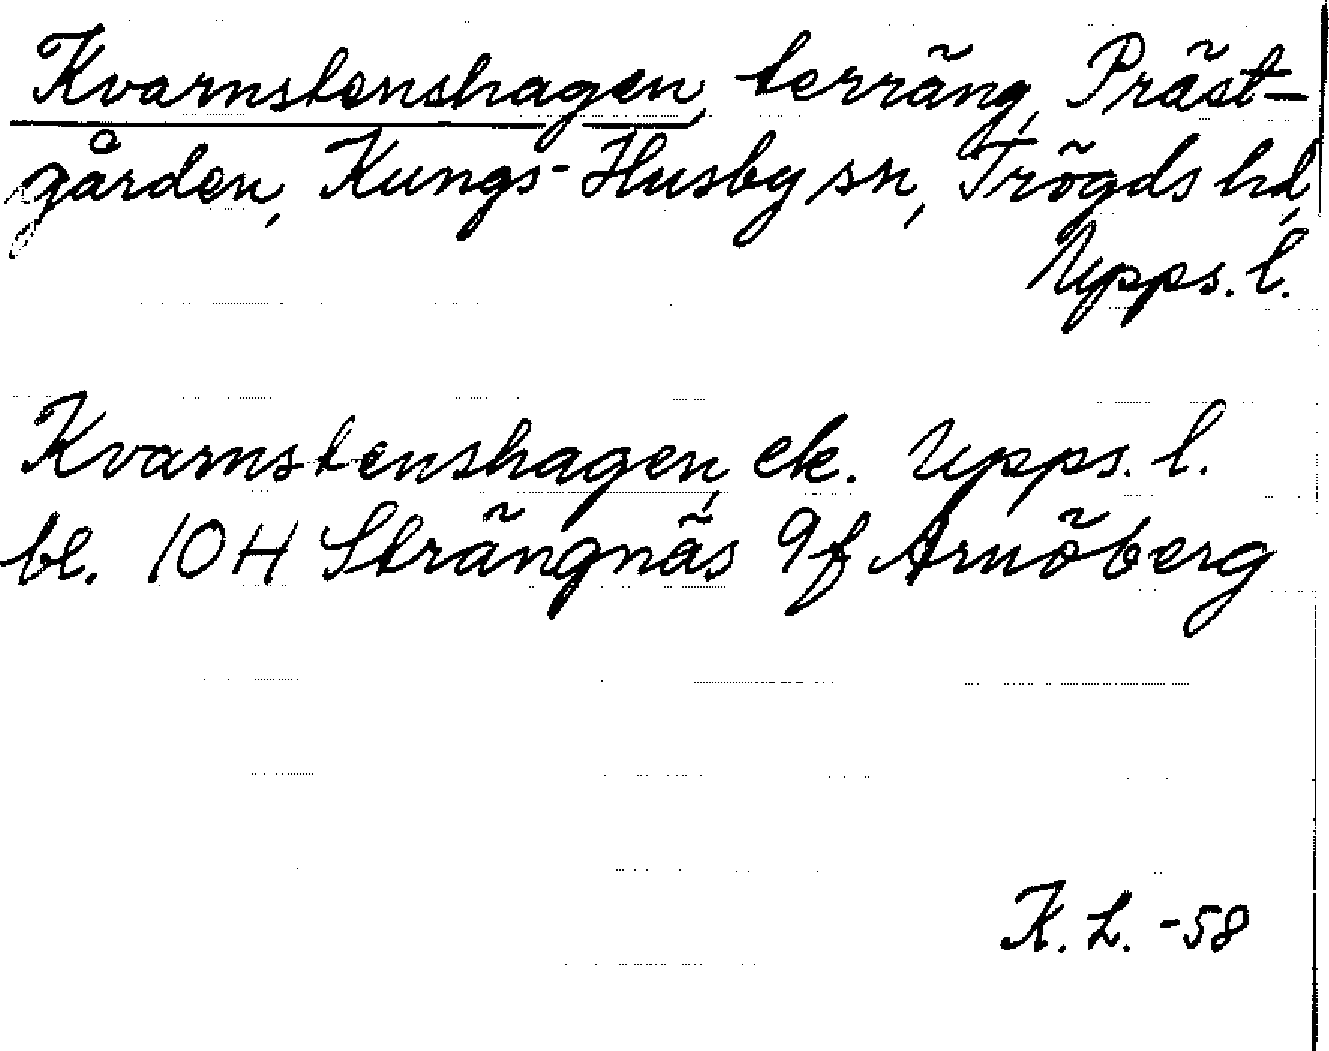 Kvarnstenshagen, terräng, Präst-
gården, Kungs-Husby sn, Trögds hd,
Upps. l.
Kvarnstenshagen, ek. Upps. l.
bl. 10H Strängnäs 9f Arnöberg
K. L. -58